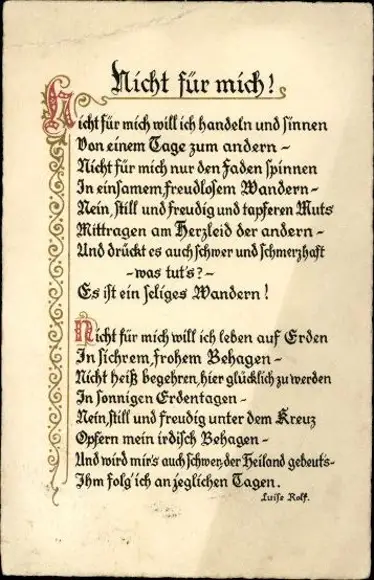 Nicht für mich!
Nicht für mich will ich handeln und sinnen
Von einem Tage zum andern –
Nicht für mich nur den Faden spinnen
In einsamem, freudlosem Wandern –
Nein, still und freudig und tapferen Muts
Mittragen am Herzleid der andern –
Und drückt es auch schwer und schmerzhaft
– was tut's? –
Es ist ein seliges Wandern!
Nicht für mich will ich leben auf Erden
In sichrem, frohem Behagen –
Nicht heiß begehren, hier glücklich zu werden
In sonnigen Erdentagen –
Nein, still und freudig unter dem Kreuz
Opfern mein irdisch Behagen –
Und wird mir's auch schwer, der Heiland gebeut's –
Ihm folg' ich an jeglichen Tagen.
Luise Rolf.